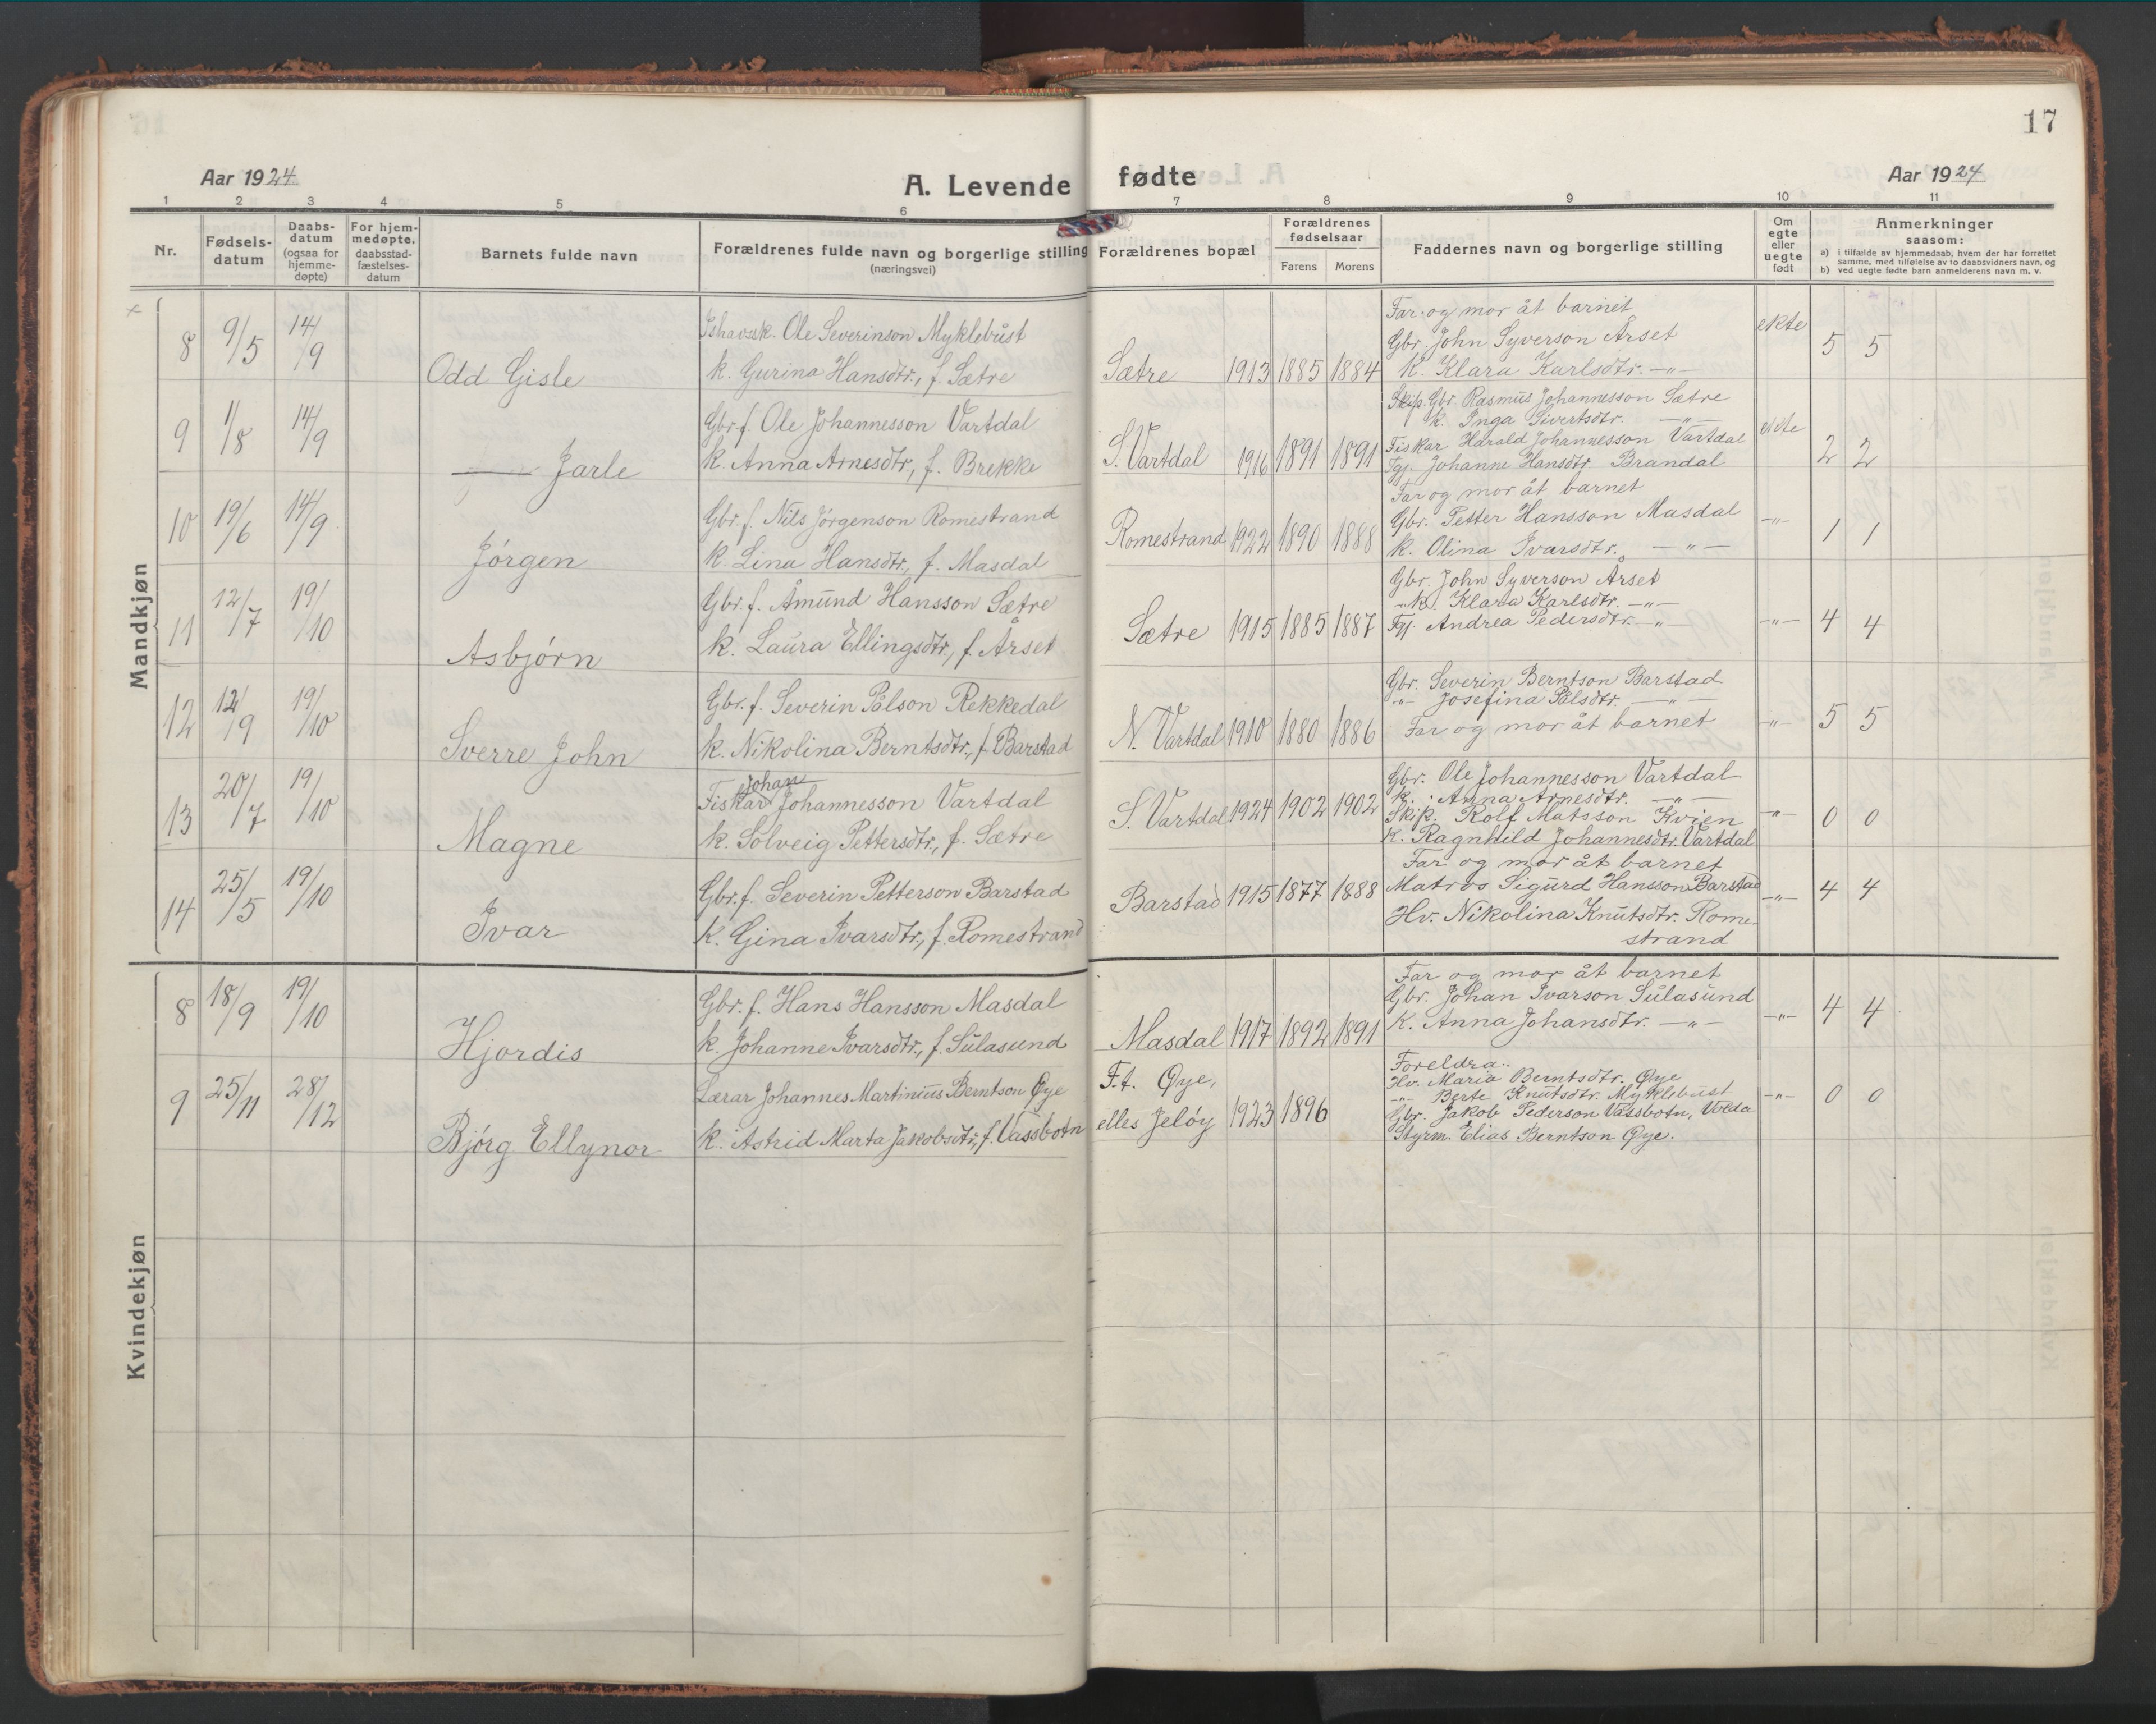 17
Aar 1924
A. Levende fødte
Aar 1924
1 2 3 4 5 6 7 8 9 10 11
Nr.
Fødsels-
datum
Daabs-
datum
(ogsaa for
hjemme-
døpte)
For hjem-
medøpte,
daabsstad-
fæstelses-
datum
Barnets fulde navn
Forældrenes fulde navn og borgerlige stilling
(næringsvei)
Forældrenes bopæl
Forældrenes
fødselsaar
Farens Morens
Faddernes navn og borgerlige stilling
Om
egte
eller
uegte
født
Anmerkninger
saasom:
a) i tilfælde av hjemmedaab, hvem der har forrettet
samme, med tilføielse av to daabsvidners navn, og
b) ved uegte fødte barn anmelderens navn m. v.
Mandkjøn
8 9/5 14/9
Odd Gisle
Ishavssk. Ole Severinson Myklebust
k. Gurina Hansdtr., f. Sætre
Sætre 1913 1885 1884
Far og mor åt barnet
Gbr. John Syverson Årset
k. Klara Karlsdtr. —"—
ekte 5 5
9 1/8 14/9
Jarle
Gbr.f. Ole Johannesson Vartdal
k. Anna Arnesdtr., f. Brekke
S. Vartdal 1916 1891 1891
Skip. Gbr. Rasmus Johannesson Sætre
k. Inga Sivertsdtr. —"—
Fiskar Harald Johannesson Vartdal
Tgj. Johanne Hansdtr. Brandal
ekte 2 2
10 19/6 14/9
Jørgen
Gbr.f. Nils Jørgenson Romestrand
k. Lina Hansdtr., f. Masdal
Romestrand 1922 1890 1888
Far og mor åt barnet
Gbr. Petter Hansson Masdal
k. Olina Ivarsdtr. —"—
—"— 1 1
11 12/7 19/10
Asbjørn
Gbr.f. Åmund Hansson Sætre
k. Laura Ellingsdtr., f. Årset
Sætre 1915 1885 1887
Gbr. John Syverson Årset
"k. Klara Karlsdtr. —"—
Tgj. Andrea Pedersdtr. —"—
—"— 4 4
12 12/9 19/10
Sverre John
Gbr.f. Severin Pålson Rekkedal
k. Nikolina Berntsdtr., f. Barstad
N. Vartdal 1910 1880 1886
Gbr. Severin Berntson Barstad
" Josefina Pålsdtr. —"—
Far og mor åt barnet
—"— 5 5
13 20/7 19/10
Magne
Johan
Fiskar Johannesson Vartdal
k. Solveig Pettersdtr., f. Sætre
S. Vartdal 1924 1902 1902
Gbr. Ole Johannesson Vartdal
k. Anna Arnesdtr. —"—
Skip. Rolf Matsson Kvien
k. Ragnhild Johannesdtr. Vartdal
—"— 0 0
14 25/5 19/10
Ivar
Gbr.f. Severin Petterson Barstad
k. Gina Ivarsdtr., f. Romestrand
Barstad 1915 1877 1888
Far og mor åt barnet
Matros Sigurd Hansson Barstad
Hv. Nikolina Knutsdtr. Rome-
strand
—"— 4 4
Kvindekjøn
8 18/9 19/10
Hjordis
Gbr.f. Hans Hansson Masdal
k. Johanne Ivarsdtr., f. Sulasund
Masdal 1917 1892 1891
Far og mor åt barnet
Gbr. Johan Ivarson Sulasund
k. Anna Johansdtr. —"—
—"— 4 4
9 25/11 28/12
Bjørg Ellynor
Lærar Johannes Martinius Berntson Øye
k. Astrid Marta Jakobsdtr., f. Vassbotn
F.t. Øye,
elles Jeløy 1923 1896
Foreldra.
Hv. Maria Berntsdtr. Øye
—"— Berte Knutsdtr. Myklebust
Gbr. Jakob Pederson Vassbotn, Volda
Styrm. Elias Berntson Øye.
—"— 0 0